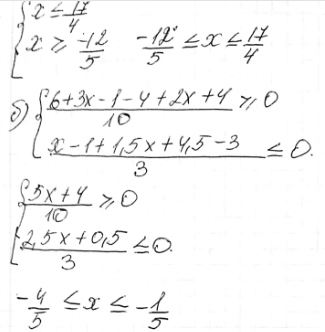 { x ≤ 17/4
x ≥ -12/5   -12/5 ≤ x ≤ 17/4
б) { (6+3x-1-4+2x+4)/10 ≥ 0
(x-1+1,5x+4,5-3)/3 ≤ 0.
{ (5x+4)/10 ≥ 0
(2,5x+0,5)/3 ≤ 0.
-4/5 ≤ x ≤ -1/5